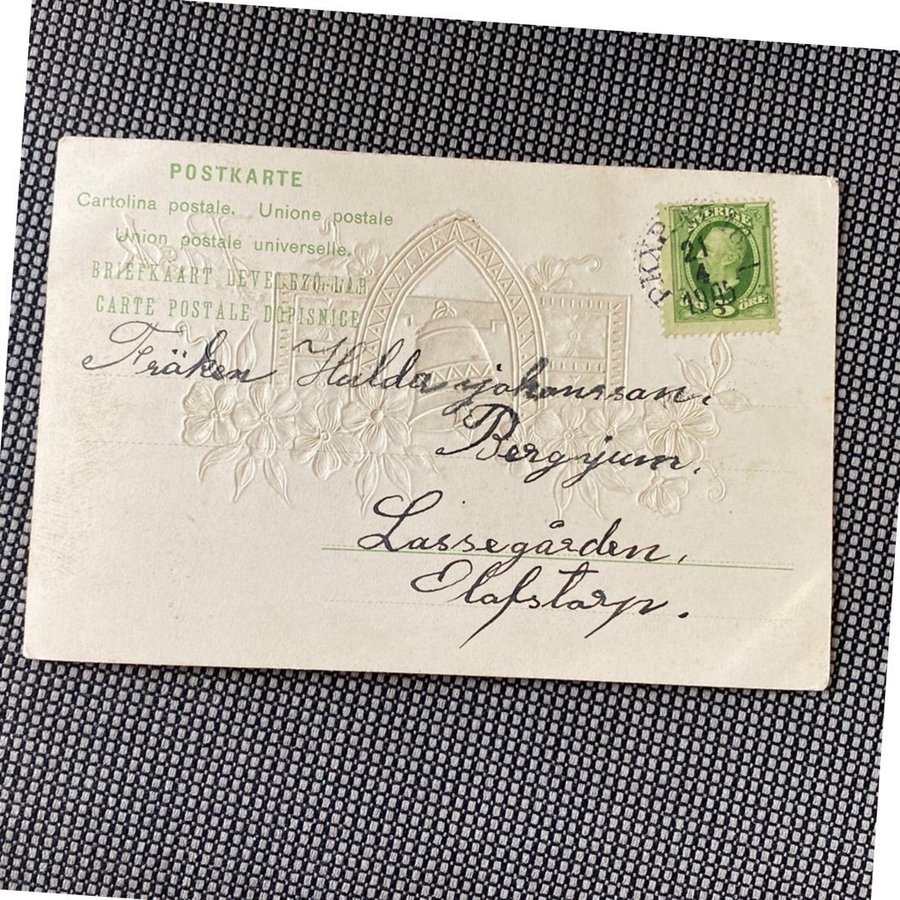 POSTKARTE
Cartolina postale. Unione postale
Union postale universelle.
BRIEFKAART LEVELEZÖ-LAP
CARTE POSTALE DOPISNICE
SVERIGE
PKXP
21
4
1905
5 ÖRE
Fräken Hulda Johanssan.
Bergjum.
Lassegården,
Olafstorp.